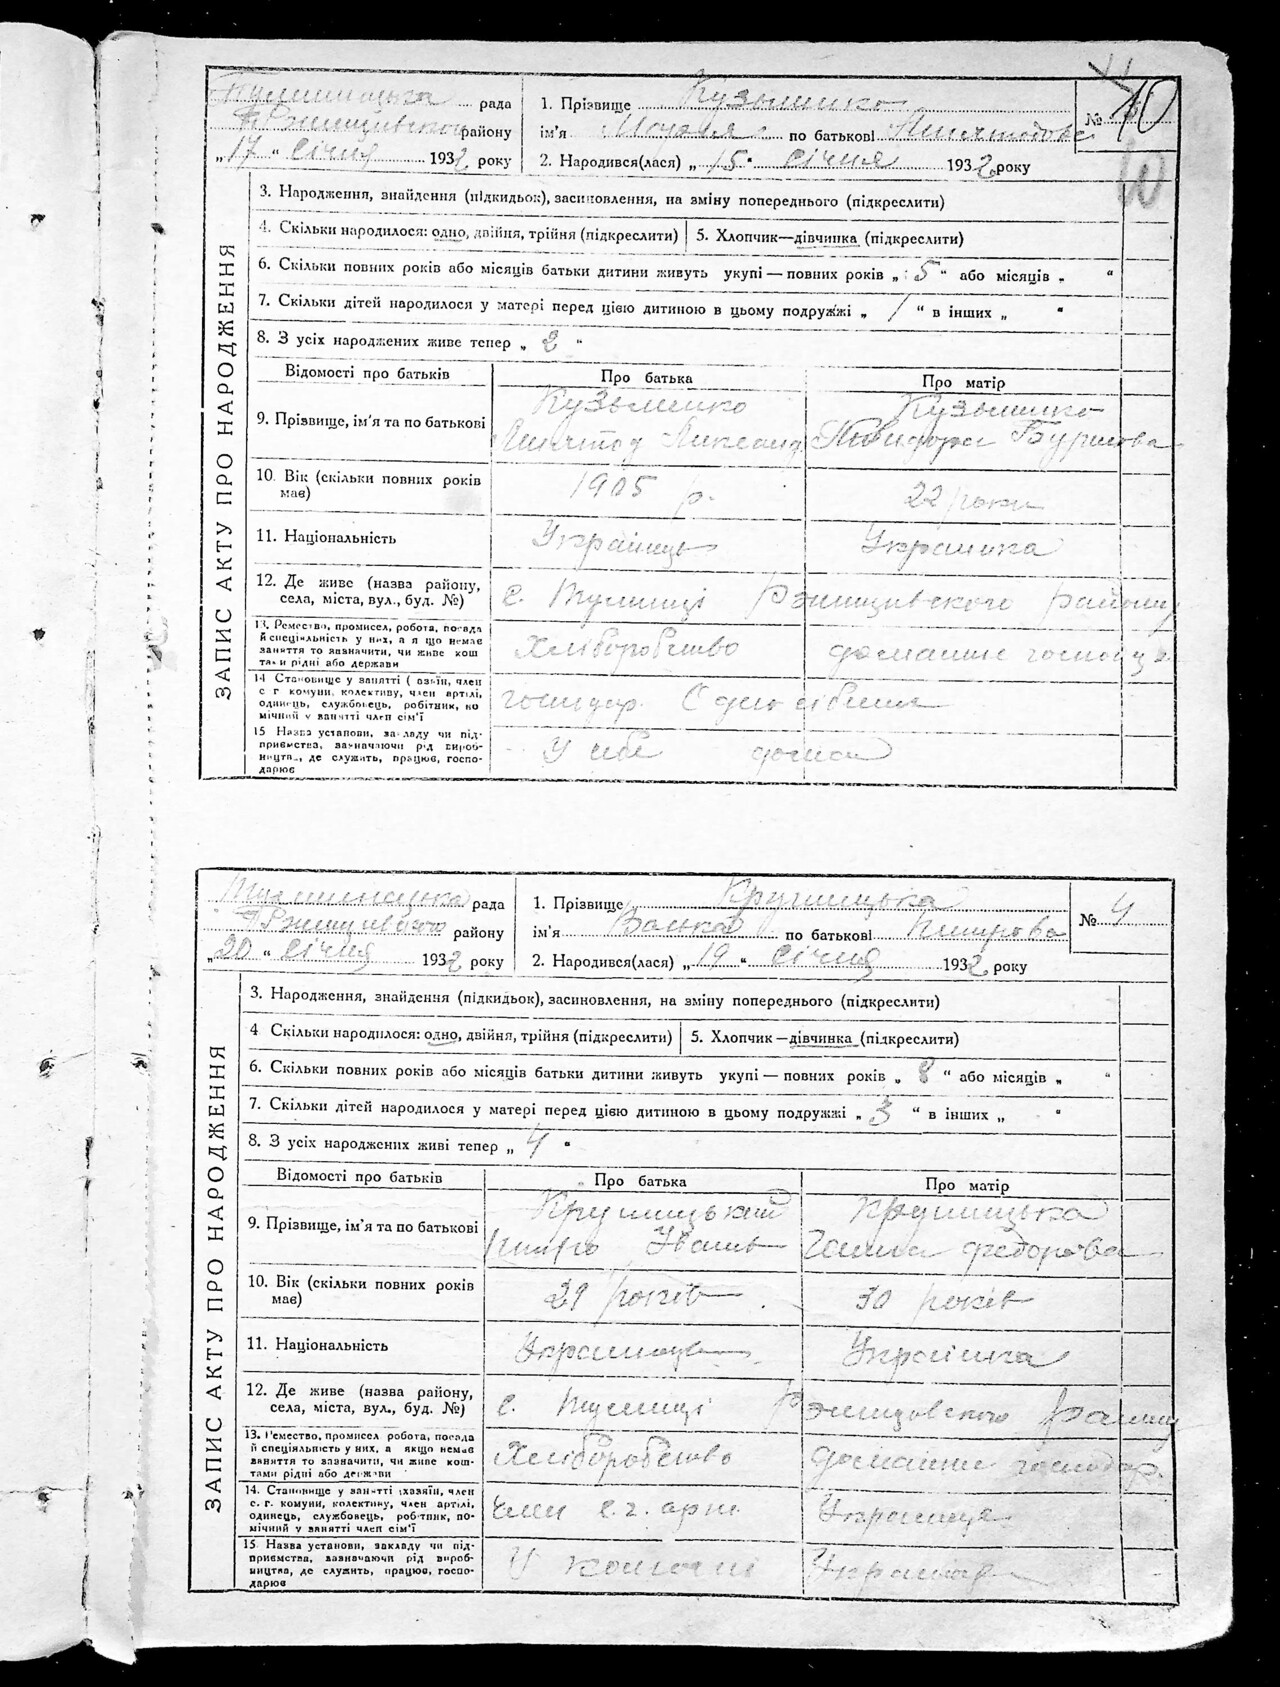 рада
району
„17“ Січня 1932 року
1. Прізвище Кузьменко
ім'я по батькові
2. Народився(лася) „15“ Січня 1932 року
№ 10
10
ЗАПИС АКТУ ПРО НАРОДЖЕННЯ
3. Народження, знайдення (підкидьок), засиновлення, на зміну попереднього (підкреслити)
4. Скільки народилося: одно, двійня, трійня (підкреслити) 5. Хлопчик—дівчинка (підкреслити)
6. Скільки повних років або місяців батьки дитини живуть укупі — повних років „5“ або місяців „ “
7. Скільки дітей народилося у матері перед цією дитиною в цьому подружжі „1“ в інших „ “
8. З усіх народжених живе тепер „2“
Відомості про батьків Про батька Про матір
9. Прізвище, ім'я та по батькові
Кузьменко
Кузьменко
10. Вік (скільки повних років
має)
1905 р.
22 роки
11. Національність Українець Українка
12. Де живе (назва району,
села, міста, вул., буд. №)
с. Тулинці Ржищивского району
13. Ремество, промисел, робота, посада
й спеціяльність у них, а якщо немає
заняття то зазначити, чи живе кош
тами рідні або держави
Хліборобство
домашнє
14 Становище у занятті (хазяїн, член
с г комуни, колективу, член артілі,
одинець, службовець, робітник, по
мічний у занятті член сім'ї
15 Назва установи, закладу чи під-
приємства, зазначаючи рід вироб-
ництва, де служить, працює, госпо-
дарює
У себе дома
рада
району
„20“ Січня 1932 року
1. Прізвище Крупицька
ім'я по батькові
2. Народився(лася) „19“ Січня 1932 року
№ 4
ЗАПИС АКТУ ПРО НАРОДЖЕННЯ
3. Народження, знайдення (підкидьок), засиновлення, на зміну попереднього (підкреслити)
4 Скільки народилося: одно, двійня, трійня (підкреслити) 5. Хлопчик—дівчинка (підкреслити)
6. Скільки повних років або місяців батьки дитини живуть укупі — повних років „8“ або місяців „ “
7. Скільки дітей народилося у матері перед цією дитиною в цьому подружжі „3“ в інших „ “
8. З усіх народжених живі тепер „4“
Відомості про батьків Про батька Про матір
9. Прізвище, ім'я та по батькові
Крупицький
Іван
Крупицька
Ганна Федорова
10. Вік (скільки повних років
має)
29 років
30 років
11. Національність Українець Українка
12. Де живе (назва району,
села, міста, вул., буд. №)
с. Тулинці Ржищовского
13. Ремество, промисел робота, посада
й спеціяльність у них, а якщо немає
заняття то зазначити, чи живе кош-
тами рідні або держави
Хліборобство
домашнє господар.
14. Становище у занятті (хазяїн, член
с. г. комуни, колективу, член артілі,
одинець, службовець, робітник, по-
мічний у занятті член сім'ї
член с. г. арт.
15 Назва установи, закладу чи під-
приємства, зазначаючи рід вироб-
ництва, де служить, працює, госпо-
дарює
У